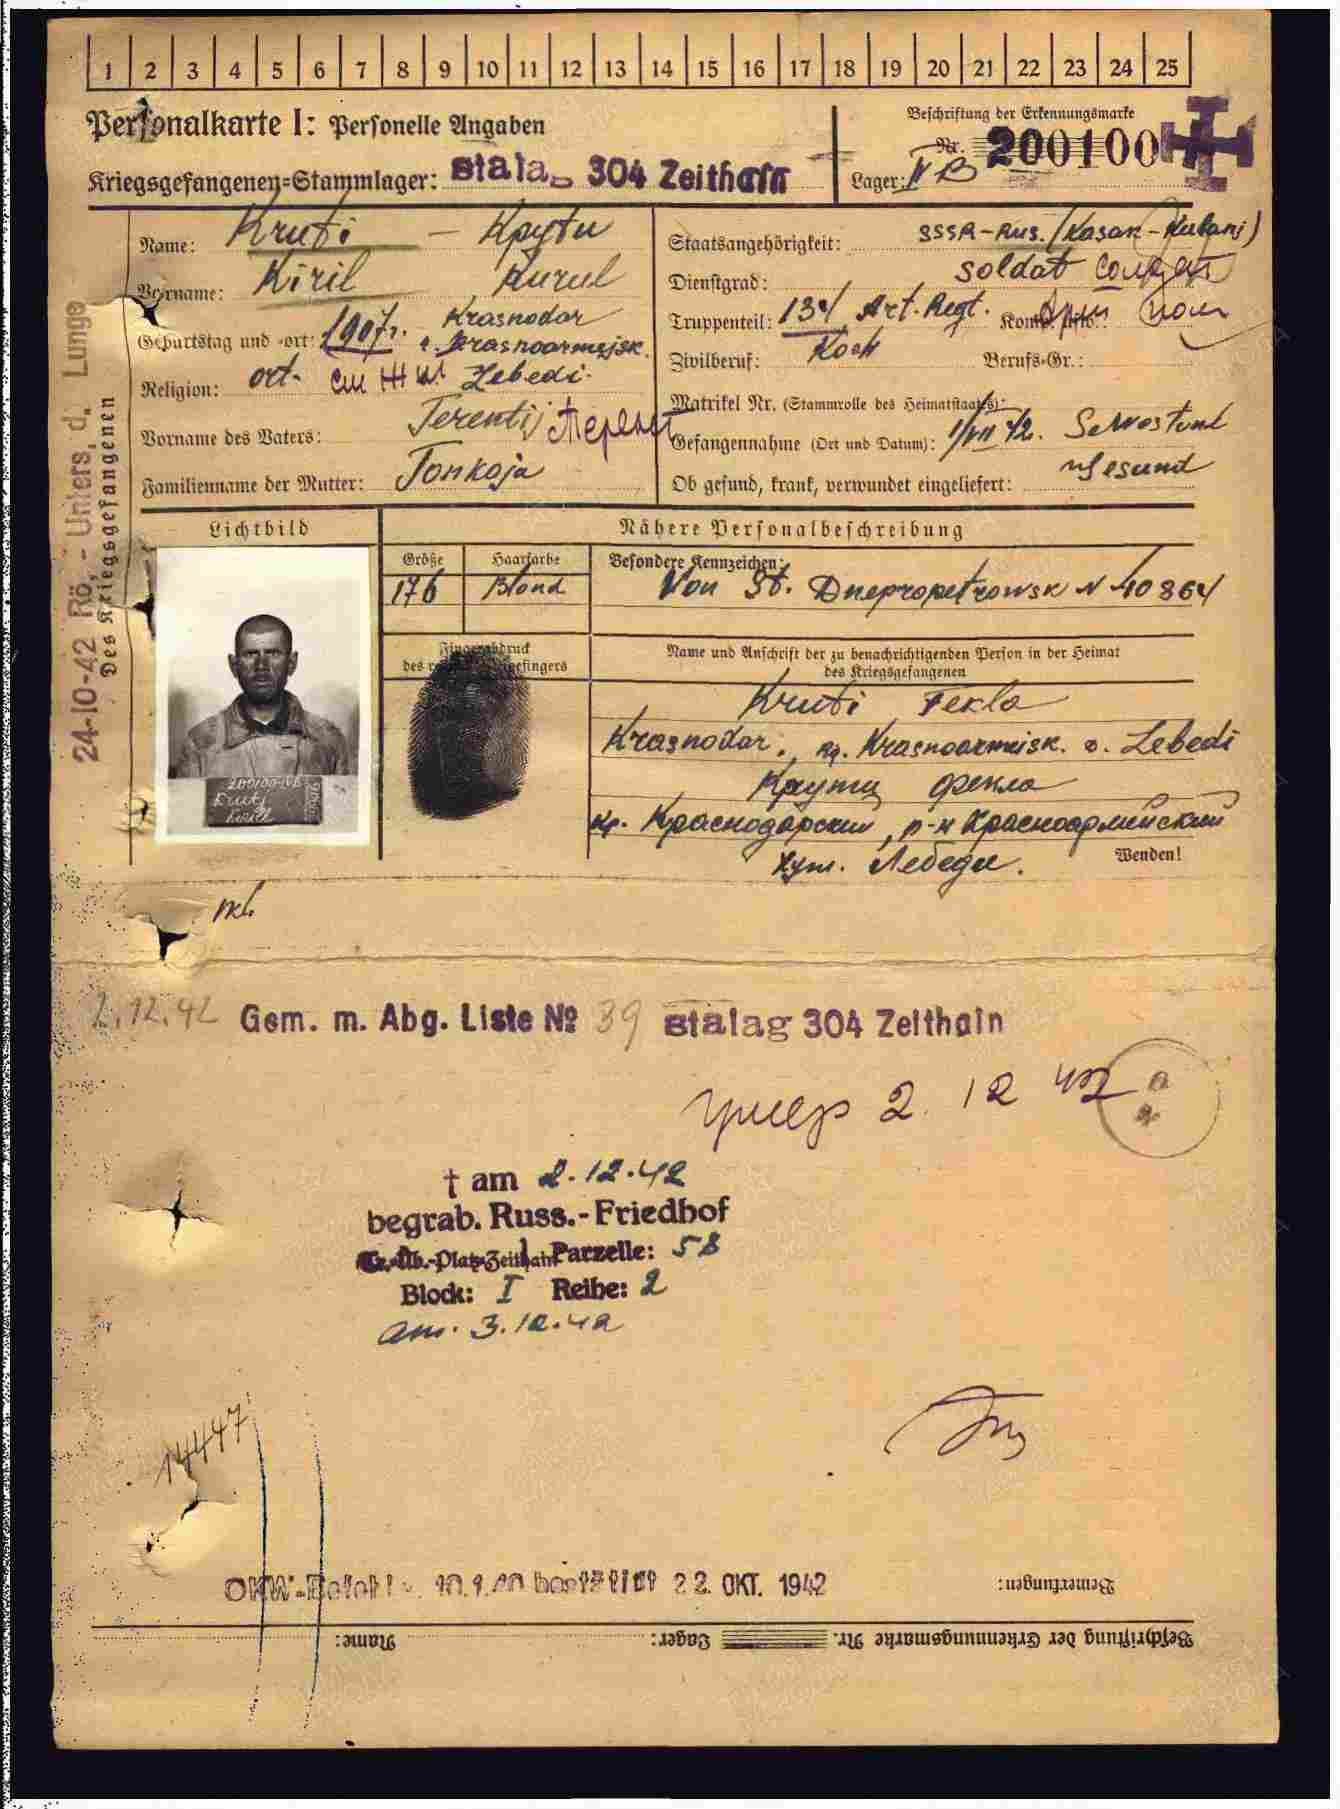 1 2 3 4 5 6 7 8 9 10 11 12 13 14 15 16 17 18 19 20 21 22 23 24 25
Personalkarte I: Personelle Angaben
Beschriftung der Erkennungsmarke
Nr. 200100
Kriegsgefangenen=Stammlager: Stalag 304 Zeithain
Lager: IV B
Name: Kruti – Крути
Vorname: Kiril Кирил
Geburtstag und =ort: 1907г. Krasnodar
r. Krasnoarmejsk.
Religion: ort. Lebedi.
Vorname des Vaters: Terentij Терент
Familienname der Mutter: Tonkoja
Staatsangehörigkeit: SSSR-Rus. (Kasak-Kubanj)
Dienstgrad: Soldat солдат
Truppenteil: 134 Art. Regt. Арт полк
Zivilberuf: Koch Berufs=Gr.:
Matrikel Nr. (Stammrolle des Heimatstaates):
Gefangennahme (Ort und Datum): 1/VII 42.
Ob gesund, krank, verwundet eingeliefert: gesund
24-10-42 Rö,- Unters, d. Lunge
Des Kriegsgefangenen
Lichtbild
Nähere Personalbeschreibung
Größe Haarfarbe Besondere Kennzeichen:
176 Blond Von St. Dnepropetrowsk N 10864
Fingerabdruck
des rechten Zeigefingers
Name und Anschrift der zu benachrichtigenden Person in der Heimat
des Kriegsgefangenen
Kruti Fekla
Krasnodar. Krasnoarmeisk. Lebedi
Крути Фекла
кр. Краснодарский, р-н Красноармейский
хут. Лебеди.
Wenden!
200100 IVB
Kruti
Kiril
2.12.42 Gem. m. Abg. Liste № 39 Stalag 304 Zeithain
умер 2.12 42
† am 2.12.42
begrab. Russ.-Friedhof
Tr.-Üb.-Platz Zeithain Parzelle: 58
Block: I Reihe: 2
am. 3.12.42
14447
OKW-Befehl v. bestätigt 22. OKT. 1942
Bemerkungen:
Beschriftung der Erkennungsmarke Nr. Lager: Name: